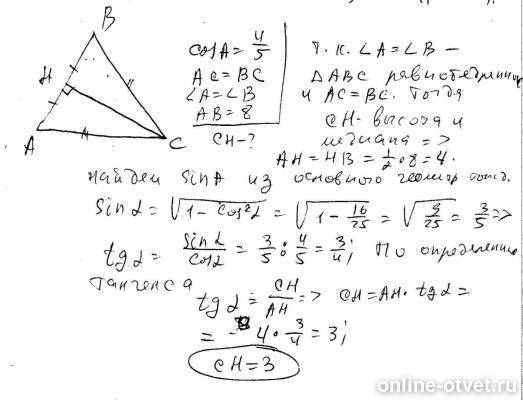 B
H
A
C
cosA = 4/5
AC = BC
∠A = ∠B
AB = 8
CH - ?
Т.к. ∠A = ∠B –
△ABC равнобедренный
и AC = BC. Тогда
CH - высота и
медиана =>
AH = HB = 1/2 · 8 = 4.
Найдем sinA из основного геометр тожд.
Sin α = √(1 - cos²α) = √(1 - 16/25) = √(9/25) = 3/5 =>
tg α = sin α / cos α = 3/5 : 4/5 = 3/4; По определению
тангенса
tg α = CH/AH => CH = AH · tg α =
= 4 · 3/4 = 3;
CH = 3
online-otvet.ru